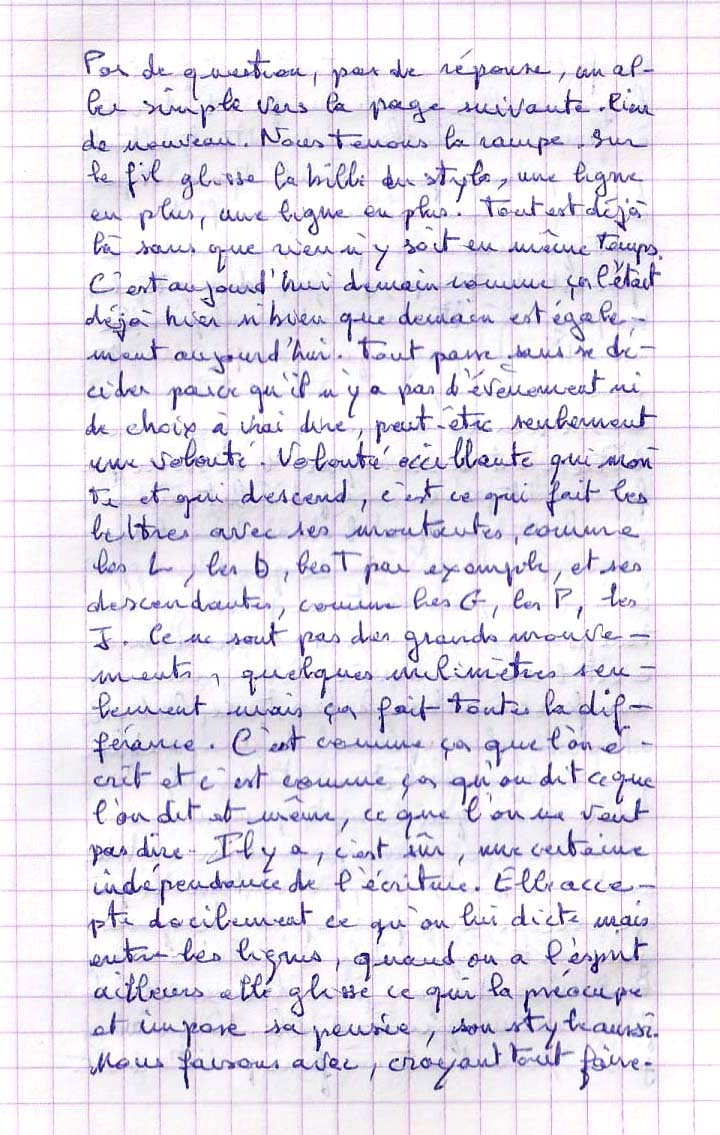 Pas de question, pas de réponse, un al-
ler simple vers la page suivante. Rien
de nouveau. Nous tenons la rampe. Sur
le fil glisse la bille du stylo, une ligne
en plus, une ligne en plus. Tout est déjà
là sans que rien n'y soit en même temps.
C'est aujourd'hui demain comme ça l'était
déjà hier si bien que demain est égale-
ment aujourd'hui. Tout passe sans se dé-
cider parce qu'il n'y a pas d'évènement ni
de choix à vrai dire, peut-être seulement
une volonté. Volonté oscillante qui mon
te et qui descend, c'est ce qui fait les
lettres avec ses montantes, comme
les L, les D, les T par exemple, et ses
descendantes, comme les G, les P, les
J. Ce ne sont pas des grands mouve-
ments, quelques milimètres seu-
lement mais ça fait toute la dif-
férance. C'est comme ça que l'on é-
crit et c'est comme ça qu'on dit ce que
l'on dit et même, ce que l'on ne veut
pas dire. Il y a, c'est sûr, une certaine
indépendance de l'écriture. Elle acce-
pte docilement ce qu'on lui dicte mais
entre les lignes, quand on a l'ésprit
ailleurs elle glisse ce qui la préocupe
et impose sa pensée, son style aussi.
Nous faisons avec, croyant tout faire.